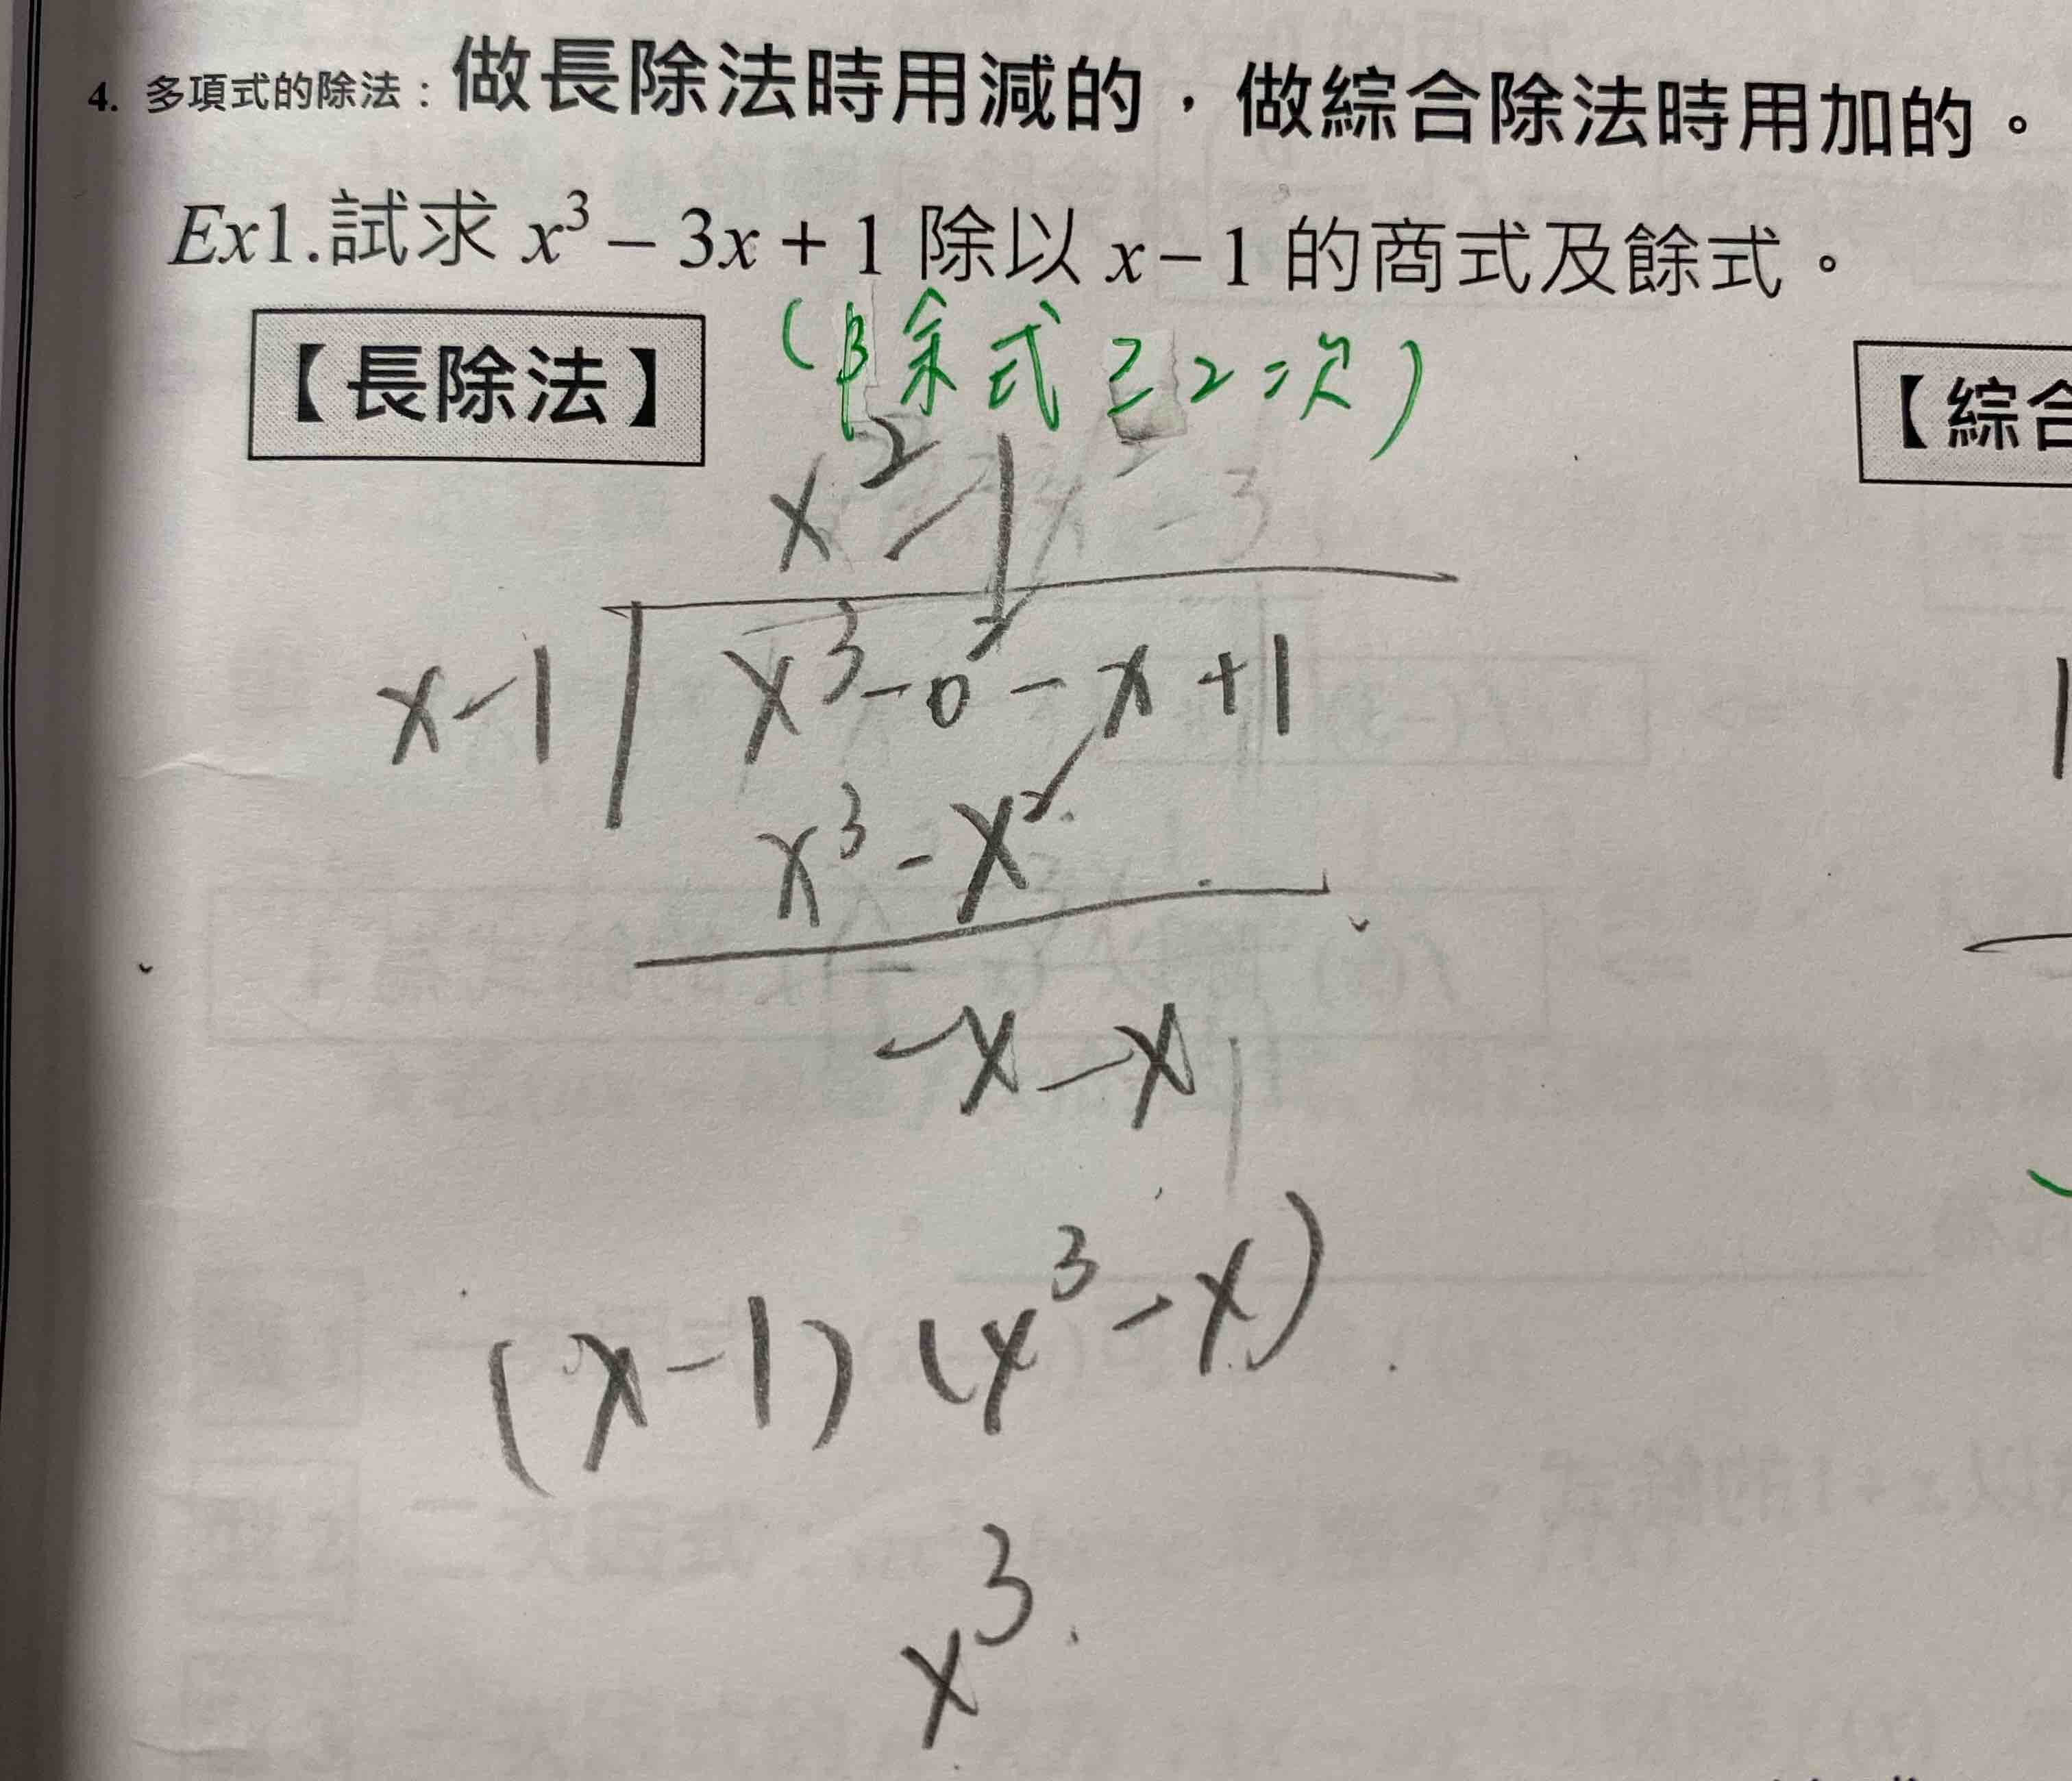 4. 多項式的除法：做長除法時用減的，做綜合除法時用加的。
Ex1.試求 x³ − 3x + 1 除以 x − 1 的商式及餘式。
【長除法】
(除式≥2次)
【綜合
x² − 1
x − 1
x³ − 0 − x + 1
x³ − x²
− x − x
(x − 1) (x³ − x)
x³